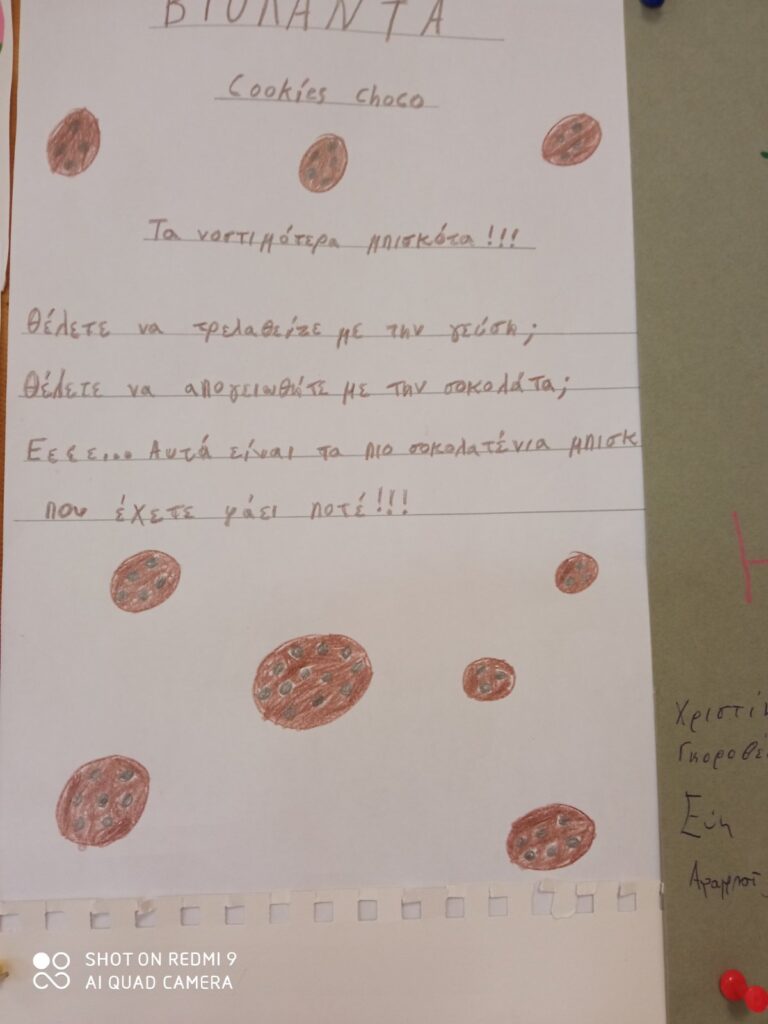 ΒΙΟΛΑΝΤΑ
Cookies choco
Τα νοστιμότερα μπισκότα!!!
Θέλετε να τρελαθείτε με την γεύση;
Θέλετε να απογειωθήτε με την σοκολάτα;
Εεεε... Αυτά είναι τα πιο σοκολατένια μπισκ
που έχετε φάει ποτέ!!!
Εύη
SHOT ON REDMI 9
AI QUAD CAMERA